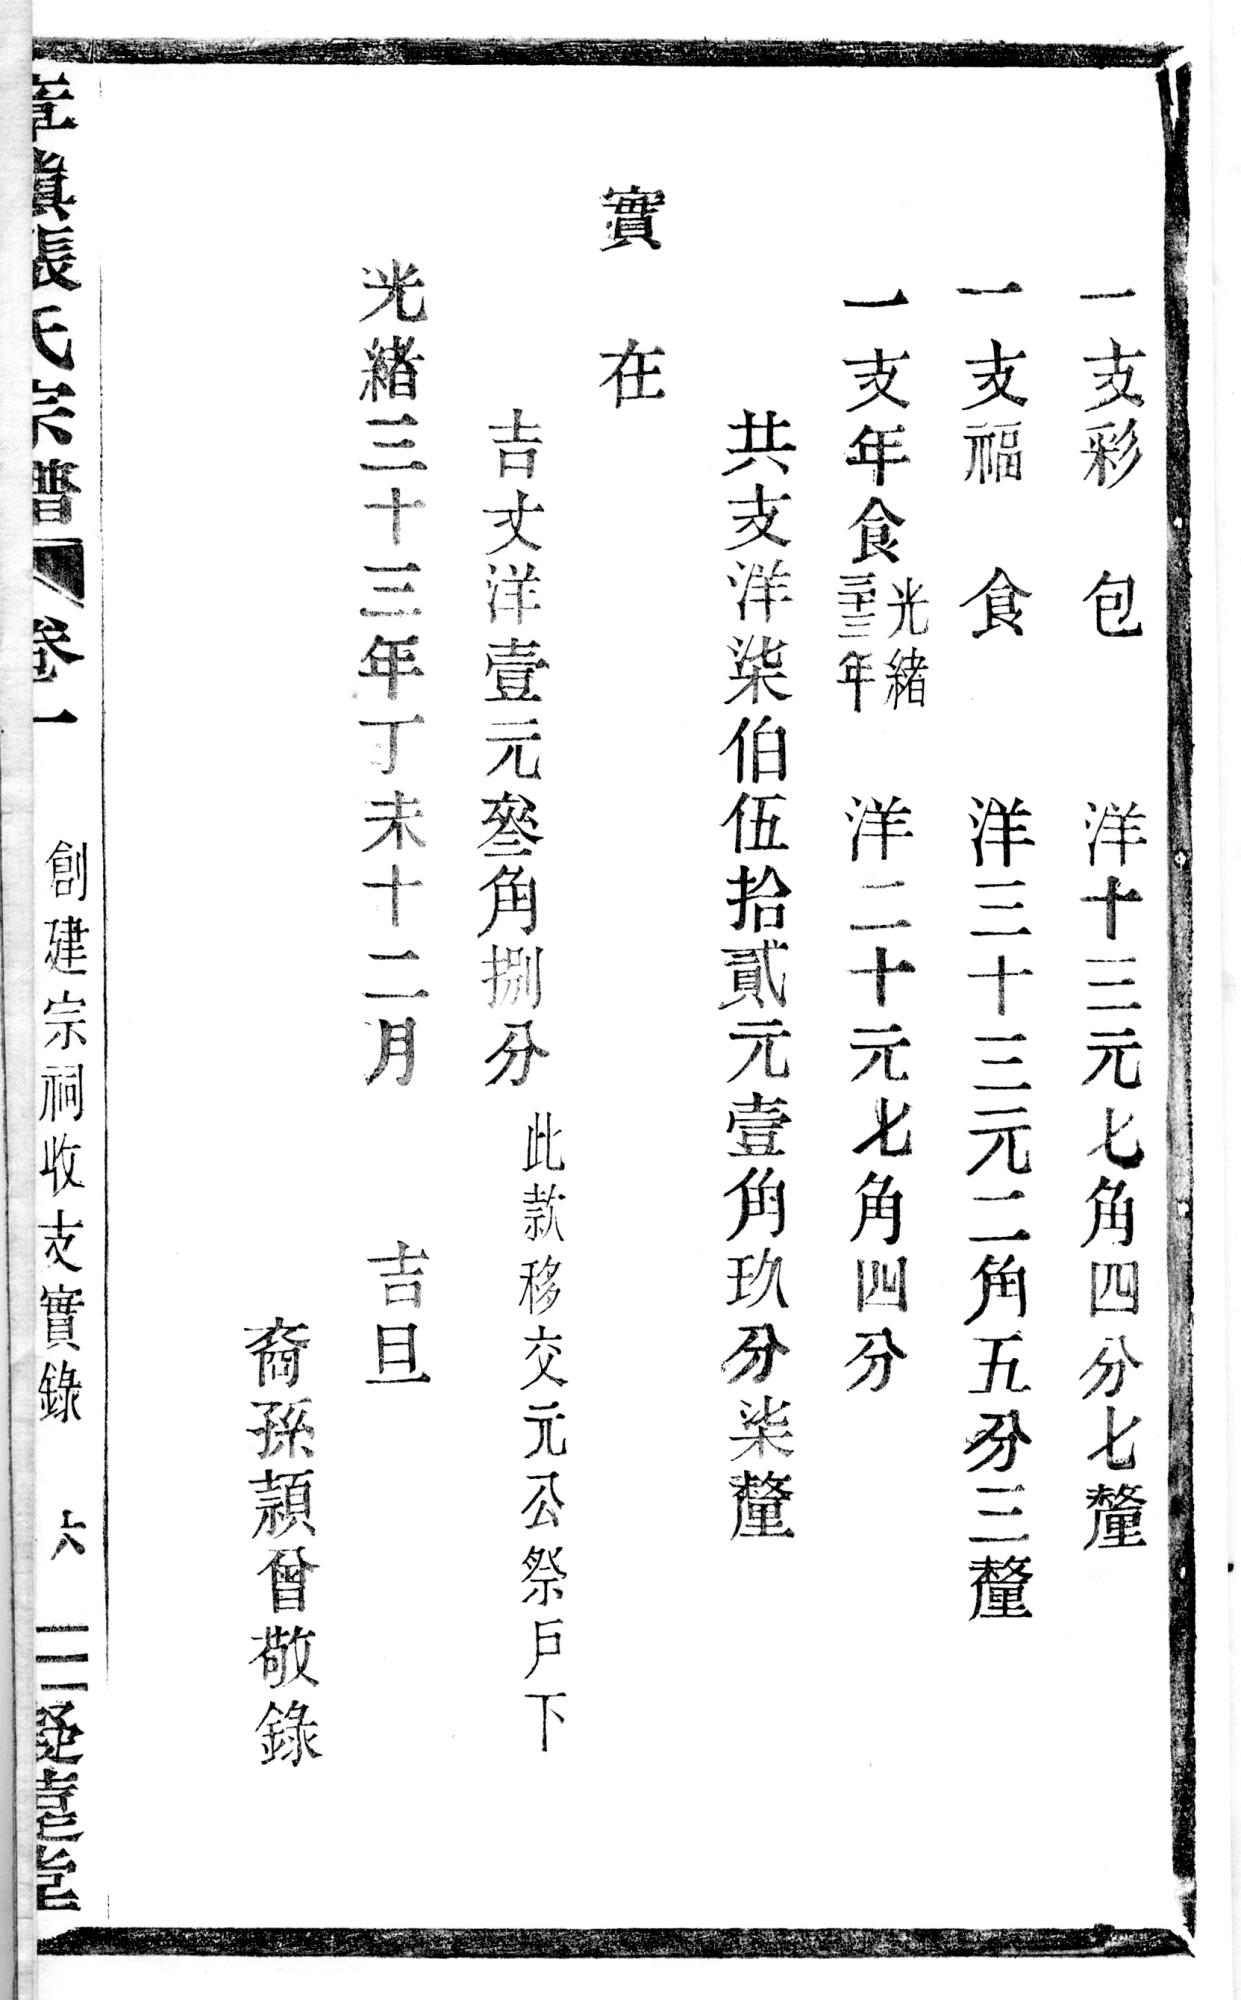 一支彩　包　　洋十三元七角四分七釐
一支福　食　　洋三十三元二角五分三釐
一支年食光緒三十三年　洋二十元七角四分
共支洋柒伯伍拾貳元壹角玖分柒釐
實　在
吉文洋壹元叄角捌分此款移交元公祭戶下
光緒三十三年丁未十二月　吉旦
裔孫頴曾敬錄
張氏宗譜　卷一　創建宗祠收支實錄　六　三　堂